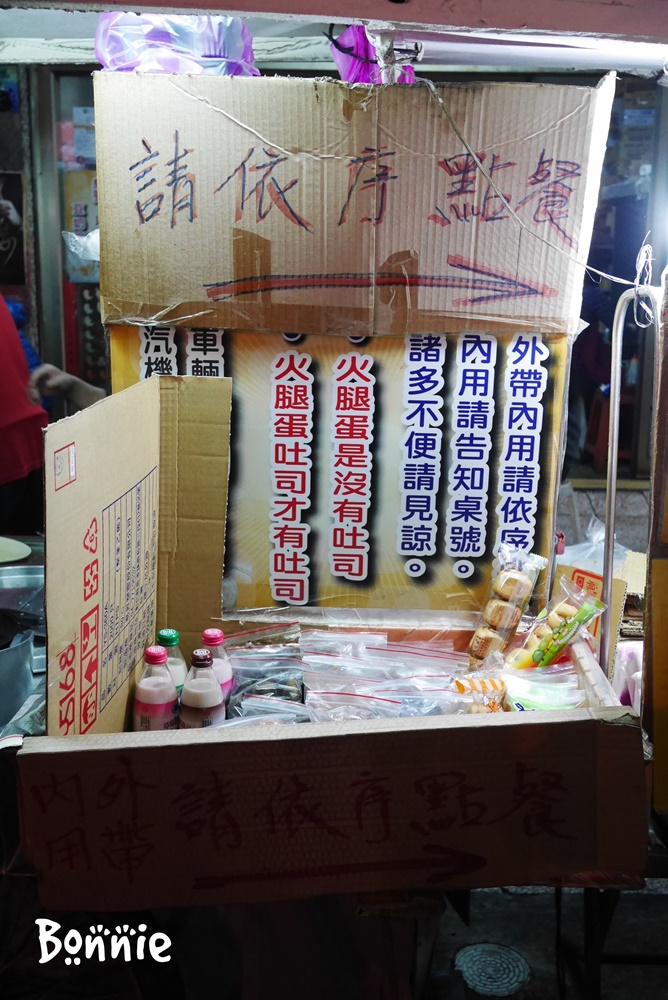 請依序點餐
外帶內用請依序
內用請告知桌號。
諸多不便請見諒。
火腿蛋是沒有吐司
火腿蛋吐司才有吐司
車輛
汽機
5168
內用
外帶
請依序點餐
Bonnie